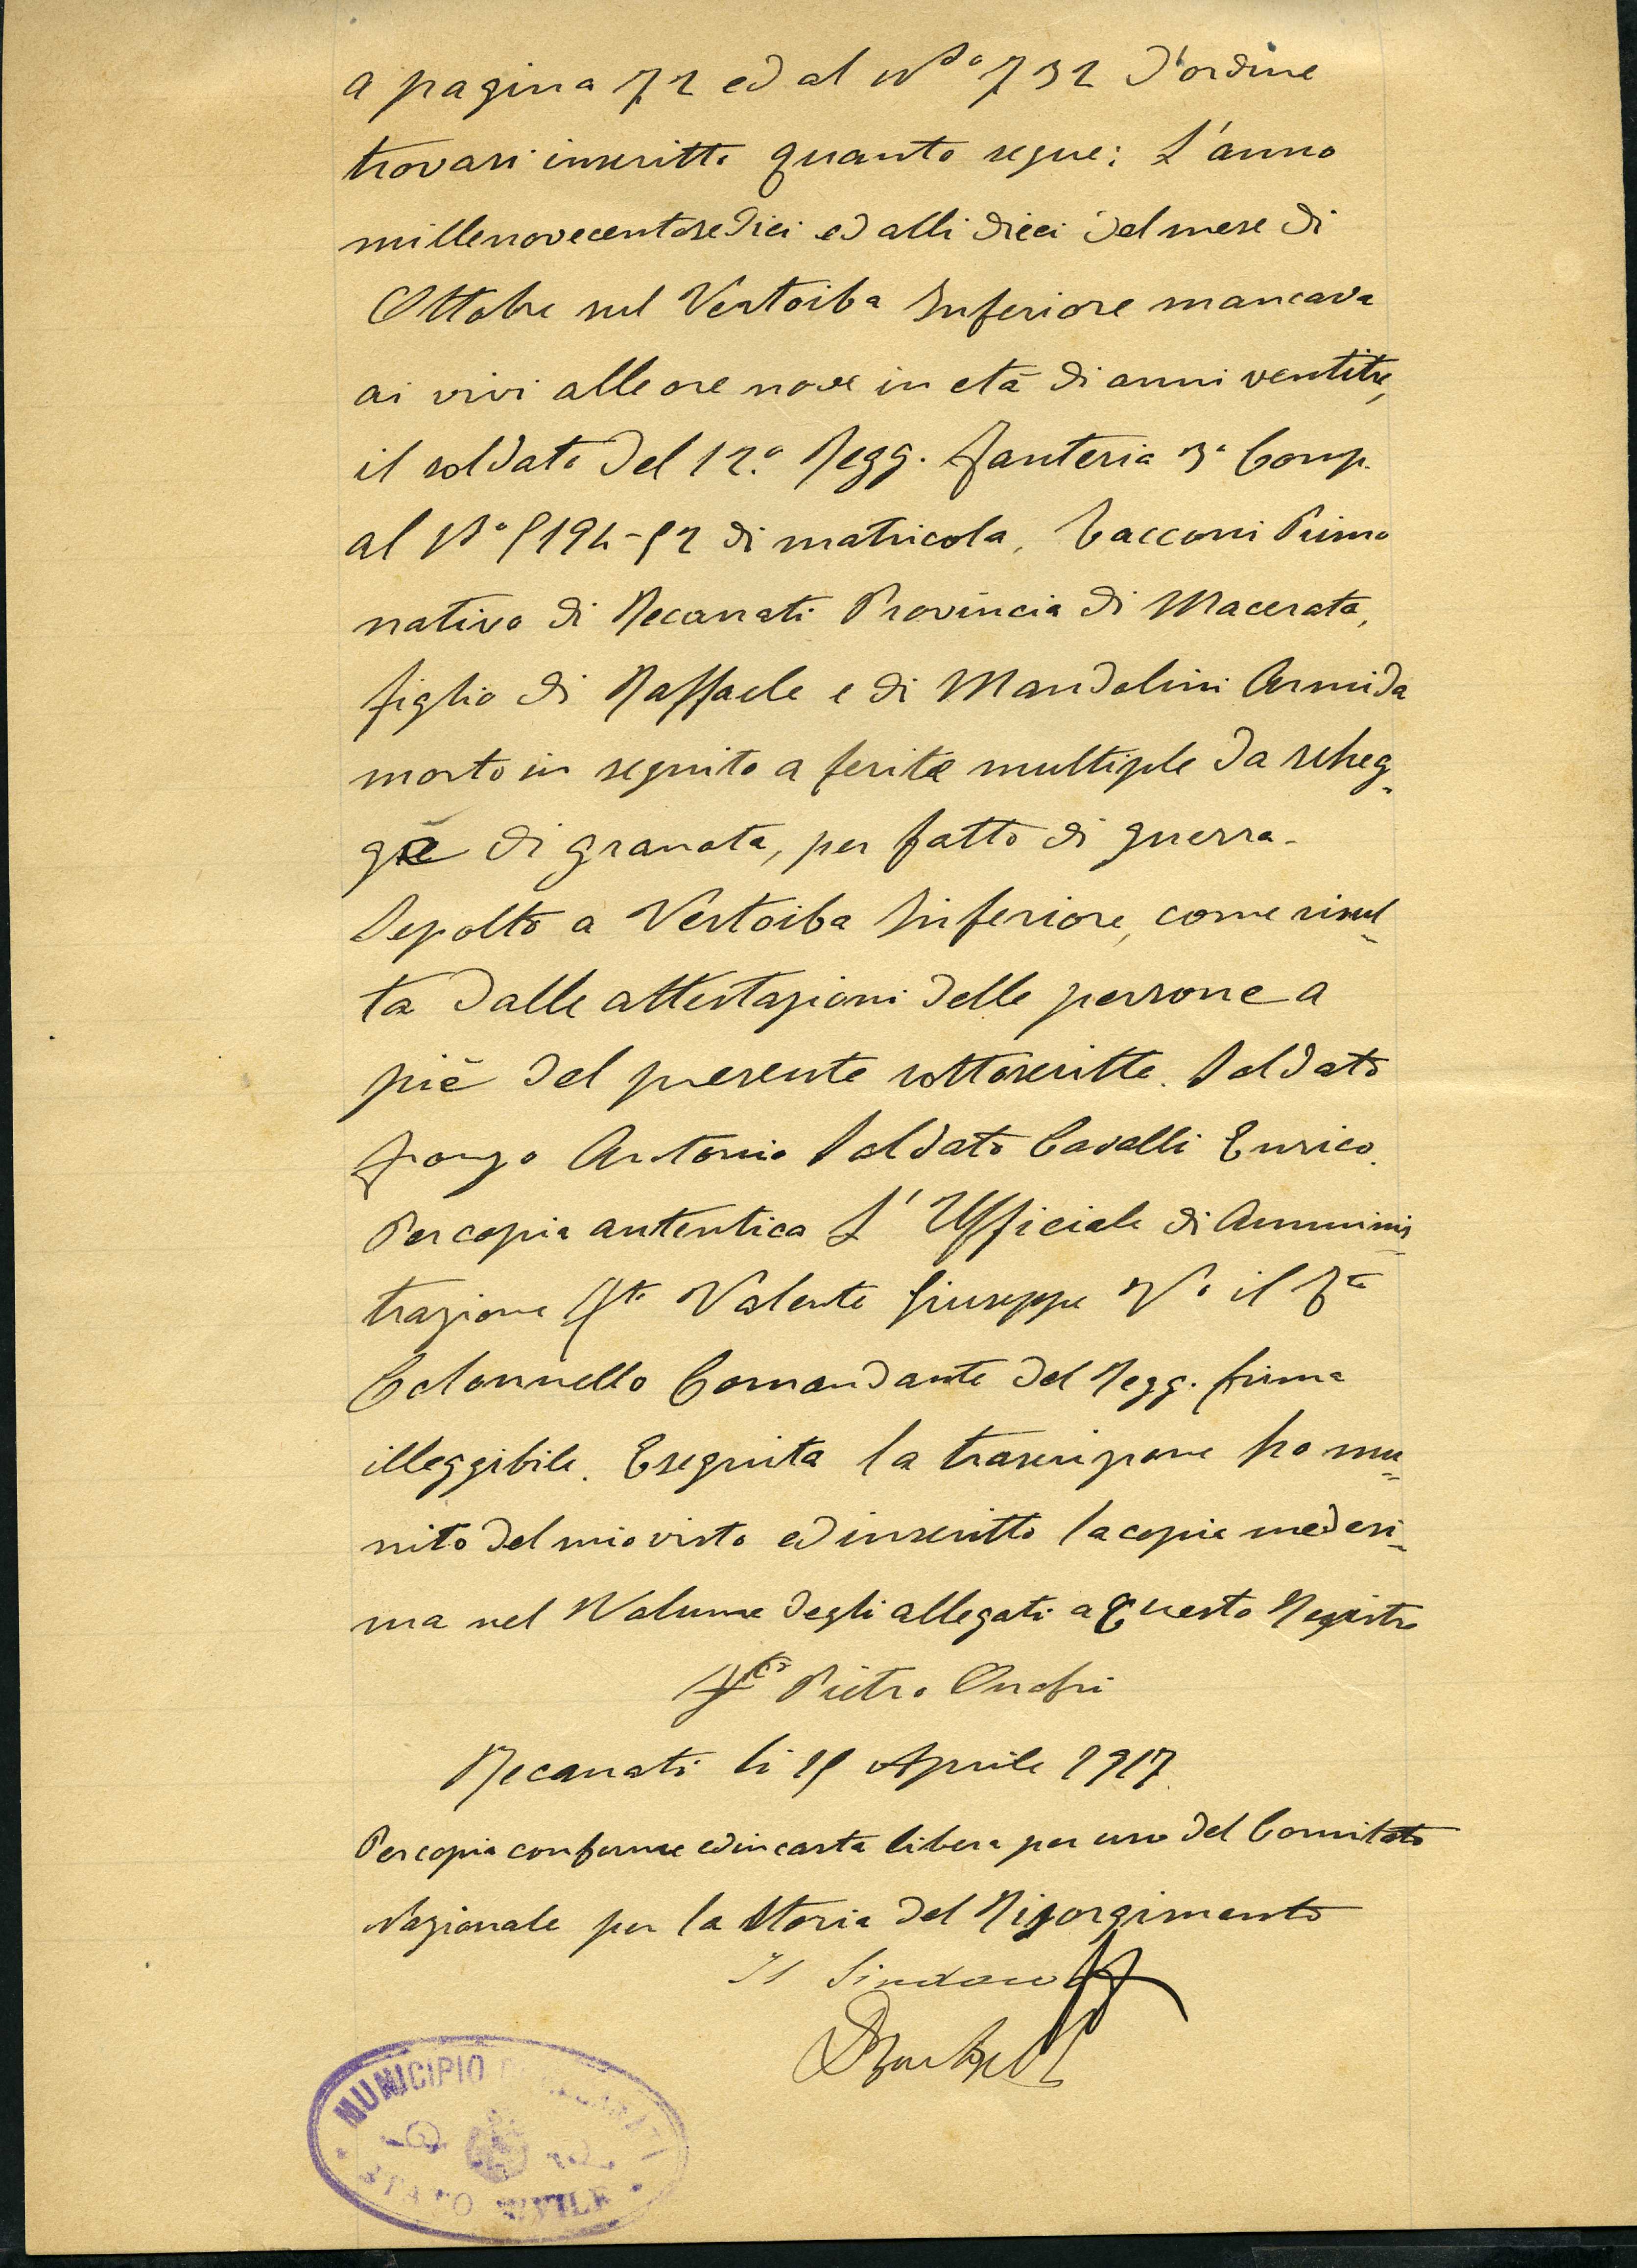 a pagina 72 ed al N° 732 d'ordine
trovasi inscritto quanto segue: L'anno
millenovecentosedici ed alli dieci del mese di
Ottobre nel Vertoiba Inferiore mancava
ai vivi alle ore nove in età di anni ventitre,
il soldato del 12.° Regg. Fanteria 3ª Comp.
al N° di matricola, Tacconi Primo
nativo di Recanati Provincia di Macerata,
figlio di Raffaele e di Mandolini Armida
morto in seguito a ferite multiple da scheg-
gie di granata, per fatto di guerra.
Sepolto a Vertoiba Inferiore, come risul-
ta dalle attestazioni delle persone a
piè del presente sottoscritte. Soldato
Antonio Soldato Cavalli Enrico.
Per copia autentica L'Ufficiale di Amminis-
trazione Fto Valente Giuseppe V° il
Colonnello Comandante del Regg. firma
illeggibile. Eseguita la trascrizione ho mu-
nito del mio visto ed inscritto la copia medesi-
ma nel Volume degli allegati a questo Registro
Fto Pietro Onofri
Recanati li Aprile 1917
Per copia conforme ed in carta libera per uso del Comitato
Nazionale per la Storia del Risorgimento
Il Sindaco
MUNICIPIO DI RECANATI
STATO CIVILE